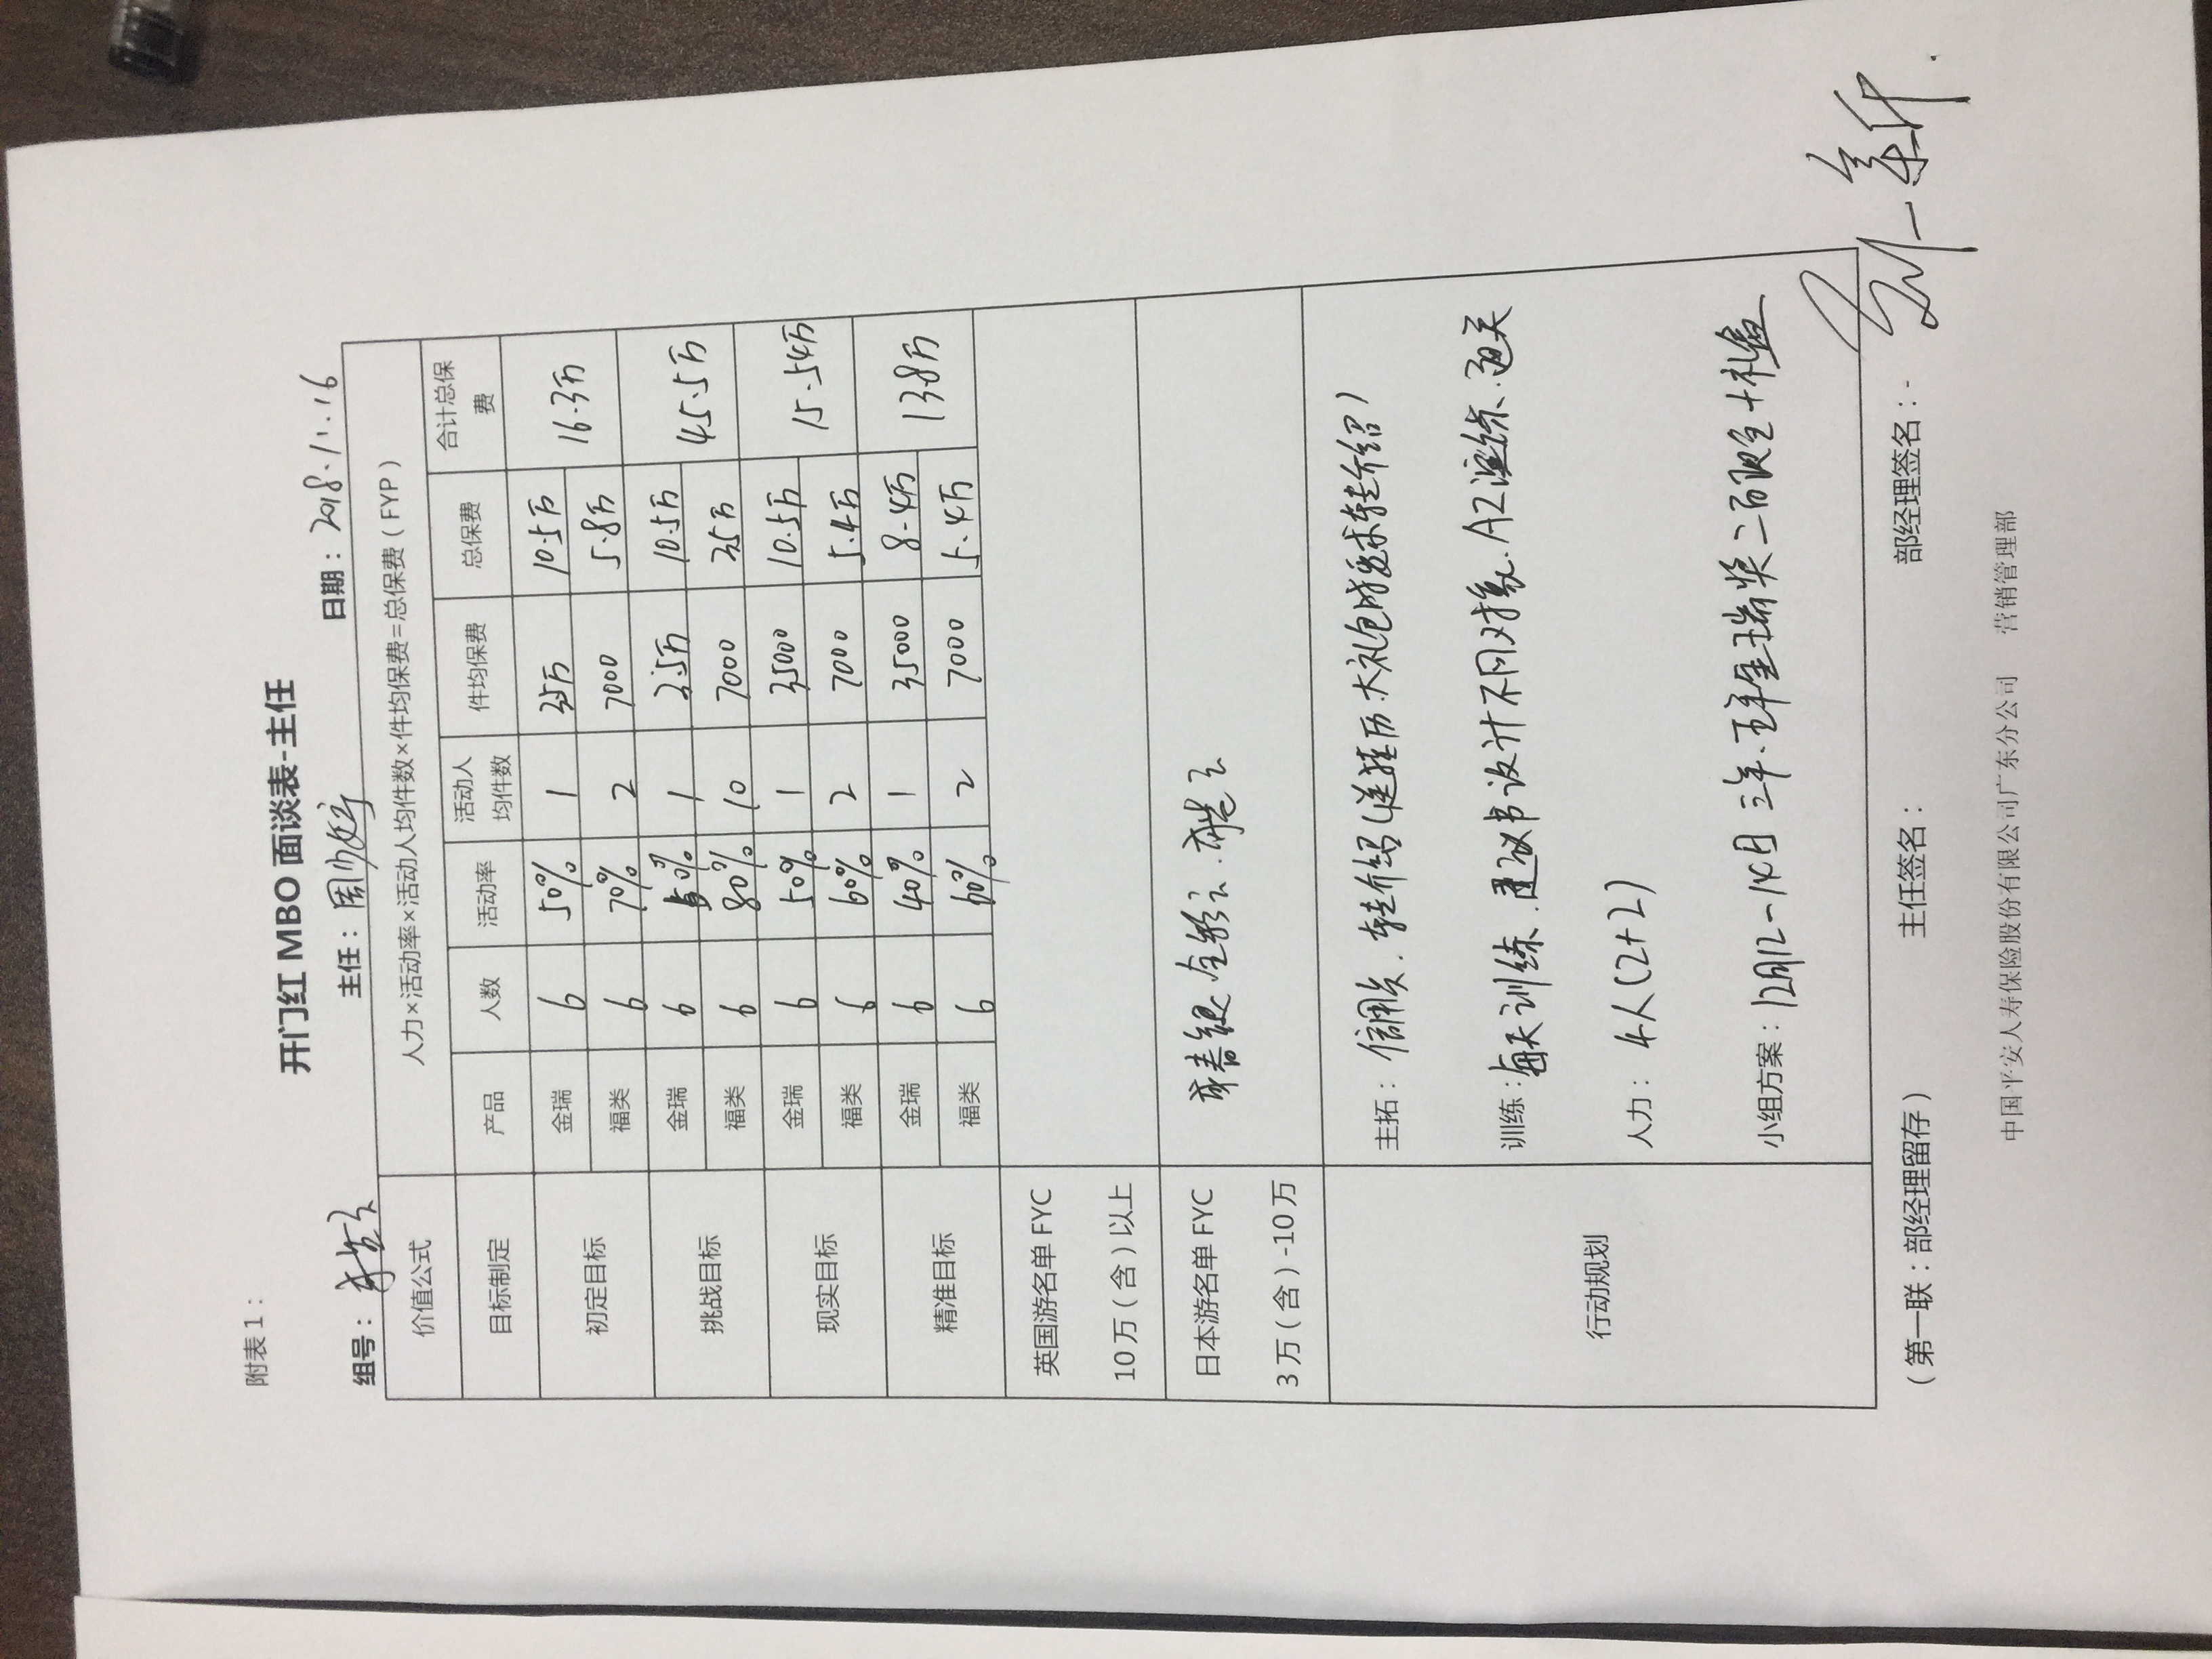 附表1：
开门红 MBO 面谈表-主任
组号： 主任：周 日期：2018.11.16
价值公式 人力×活动率×活动人均件数×件均保费=总保费（FYP）
目标制定 产品 人数 活动率 活动人均件数 件均保费 总保费 合计总保费
初定目标 金瑞 6 50% 1 3.5万 10.5万 16.3万
福类 6 70% 2 7000 5.8万
挑战目标 金瑞 6 50% 1 3.5万 10.5万 45.5万
福类 6 80% 10 7000 35万
现实目标 金瑞 6 50% 1 35000 10.5万 15.54万
福类 6 60% 2 7000 5.4万
精准目标 金瑞 6 40% 1 35000 8.4万 13.8万
福类 6 60% 2 7000 5.4万
英国游名单 FYC
10万（含）以上
日本游名单 FYC
3万（含）-10万
行动规划
主拓：信用卡.转介绍(送挂历.大礼包 要求转介绍)
训练：每天训练.建议书设计不同对象.A2演练.通关
人力：4人(2+2)
小组方案：12月12-14日 三年.五年金瑞奖二百现金+礼盒
（第一联：部经理留存） 主任签名： 部经理签名：
中国平安人寿保险股份有限公司广东分公司 营销管理部